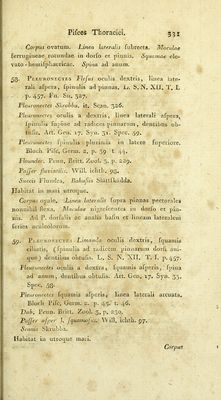 Pisces Thoracici. 331
Corpus ovatum. Linea lateralis subrecta. Maculae
ferrugineae rotundae in dorso et pinnis. Squamae ele-
vato-hemisphaericae. Spina ad anum.
58. Pleuronectes Flesus oculis dextris, linea late-
rali aspera, spinulis ad pinnas. L. S. N. XII, T. I.
p. 457. Fn. Sn. 327.
Pleuronectes Skrubba, it. Scan. 326.
Pleuronectes oculis a dextra, linea laterali aspera,
spinulis supine ad radices pinnarum, dentibus ob-
tusis. Art. Gen. 17. Syn. 31. Spec. 59.
Pleuronectes spinulis plurimis in latere superiore.
Bloch Pisc. Germ. 2, p. 39 t. 44.
Flounder. Penn. Britt. Zool. 3. p. 229.
Passer fluviatilis. Will. ichth. 98.
Suecis Flundra, Bahusiis Slättskädda.
Habitat in mari utroque.
Corpus ovale. Linea lateralis supra pinnas pectorales
nonnihil flexa. Maculae nigrescentes in dorso et pin-
nis. Ad P. dorsalis ac analis basin et lineam lateralem
series aculeolorum.
59. Pleuronectes Limanda oculis dextris, squamis
ciliatis, (spinulis ad radicem pinnarum dorsi ani-
que) dentibus obtusis. L. S. N. XII. T. I. p. 457.
Pleuronectes oculis a dextra, squamis asperis, spina
ad anum, dentibus obtusis. Art. Gen. 17. Syn. 33.
Spec. 58.
Pleuronectes squamis asperis, linea laterali arcuata.
Bloch Pisc. Germ. 2. p. 45. t. 46.
Dab, Penn. Britt. Zool. 3, p. 230.
Passer asper s. squamosus. Will. ichth. 97.
Scanis Skrubba.
Habitat in utroque mari.
Corpus